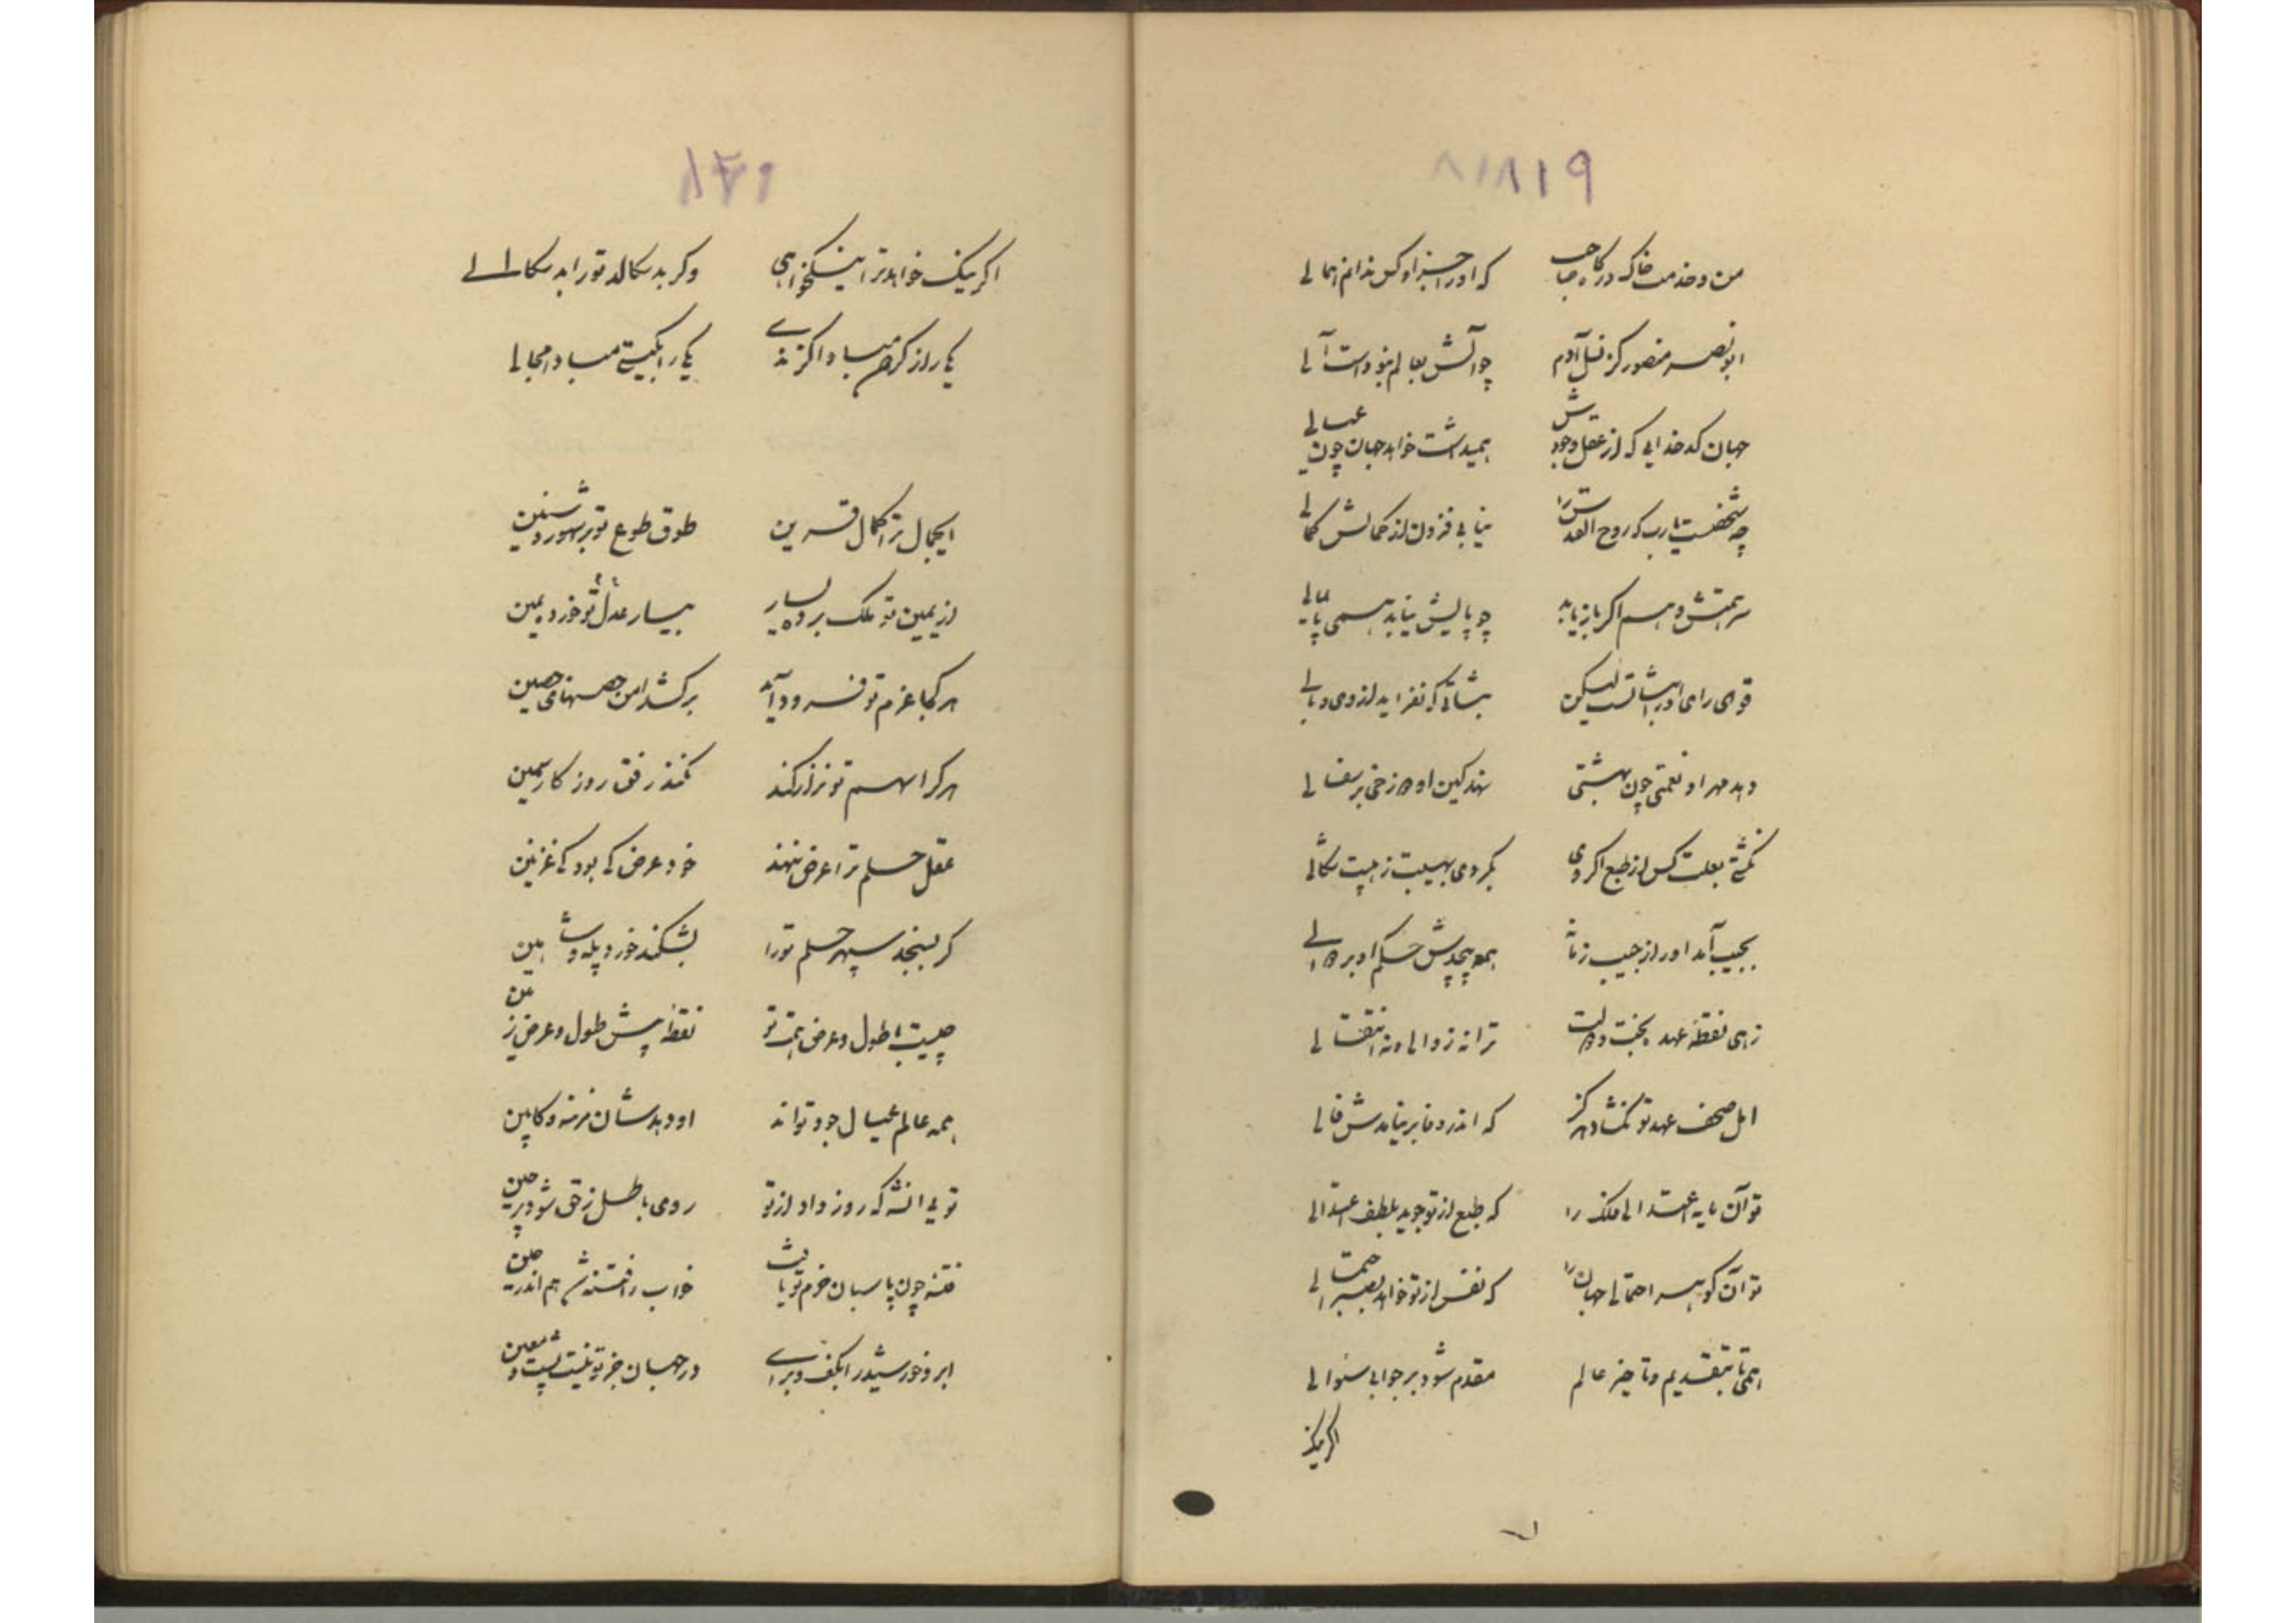 ۸۱۹
من و خدمت خاک درگاه صاحب که او را جز او کس ندانم همالی
ابونصر منصور کز نسل آدم چو آتش بعالم نبوداست آلی
جهان کدخدایی که از عقل وجودش همیداشت خواهد جهان چون عیالی
چه شخصست یارب که روح القدس را نیابی فزون از کمالش کمالی
سر همتش وهم اگر باز یابد چو پایش نیابد همی پایمالی
قوی رای او را شباتست لیکن شباتی که نفزاید از وی وبالی
دهد مهر او نعمتی چون بهشتی نهد کین او دوزخی بر سفالی
نگشتی بعلت کس از طبع اگر وی نکردی بهیبت ز هیبت نکالی
بجیب آمد او را ز جیب زمانه همو پیچدش حکم او بر دوالی
زهی نقطه عهد بخت و دولت ترا نه زوالی و نه انتقالی
امل مصحف عهد تو نگشاد هرگز که اندر وفا بر نیامدش فالی
تو آن مایه اعتدالی فلک را که طبع از تو جوید بلطف اعتدالی
تو آن گوهر احتمالی جهان را که نفس از تو خواهد بصبر احتمالی
همی تا بتقدیم و تاخیر عالم مقدم شود بر جوابی سئوالی
اگر نیک
۸۲۰
اگر نیک خواهد ترا نیکخواهی وگر بد سکالد تو را بد سکالی
یکی را ز گردون مبادا گزندی یکی را بگیتی مبادا مجالی
ای کمال ترا کمال قرین طوق طوع تو بر شهور و سنین
از یمین تو ملک برده یسار بیسار عدل تو خورد یمین
هر کجا عزم تو فرود آید برکشد امن حصنهای حصین
هر کرا سهم تو نزار کند نکند رفق روزگار سمین
عقل حلم ترا عرض ننهد خود عرض کی بود که غزنین
گر بسنجد سپهر حلم تو را بشکند خورد پله و شاهین
چیست با طول و عرض همت تو نقطه پیش طول و عرض زمین
همه عالم عیال جود تواند او دهدشان مزنه و کابین
تویی آنشه که روز داد از تو روی باطل ز حق شود پر چین
فتنه چون پاسبان حزم تو یافت خواب رفتنش هم اندر حین
ابر و خورشید را بکف و برای در جهان جز تو نیست پشت و معین